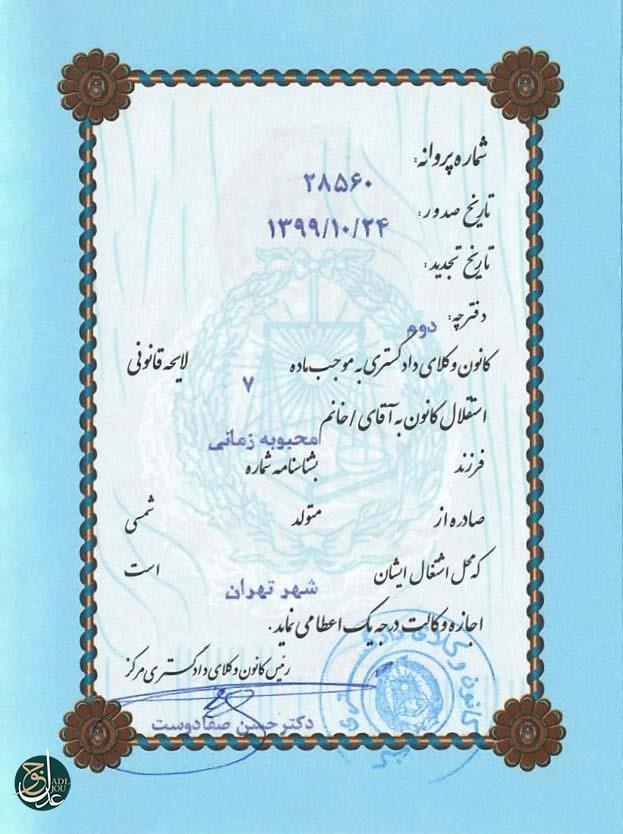 شماره پروانه:
۲۸۵۶۰
تاریخ صدور:
۱۳۹۹/۱۰/۲۴
تاریخ تجدید:
دفترچه:
دوم
کانون وکلای دادگستری به موجب ماده ۷ لایحه قانونی
استقلال کانون به آقای / خانم
محبوبه زمانی
فرزند بشناسنامه شماره
صادره از متولد شمسی
که محل اشتغال ایشان شهر تهران است
اجازه وکالت درجه یک اعطا می نماید.
رئیس کانون وکلای دادگستری مرکز
دکتر حسن صفادوست
کانون وکلای دادگستری
ADL
JOU